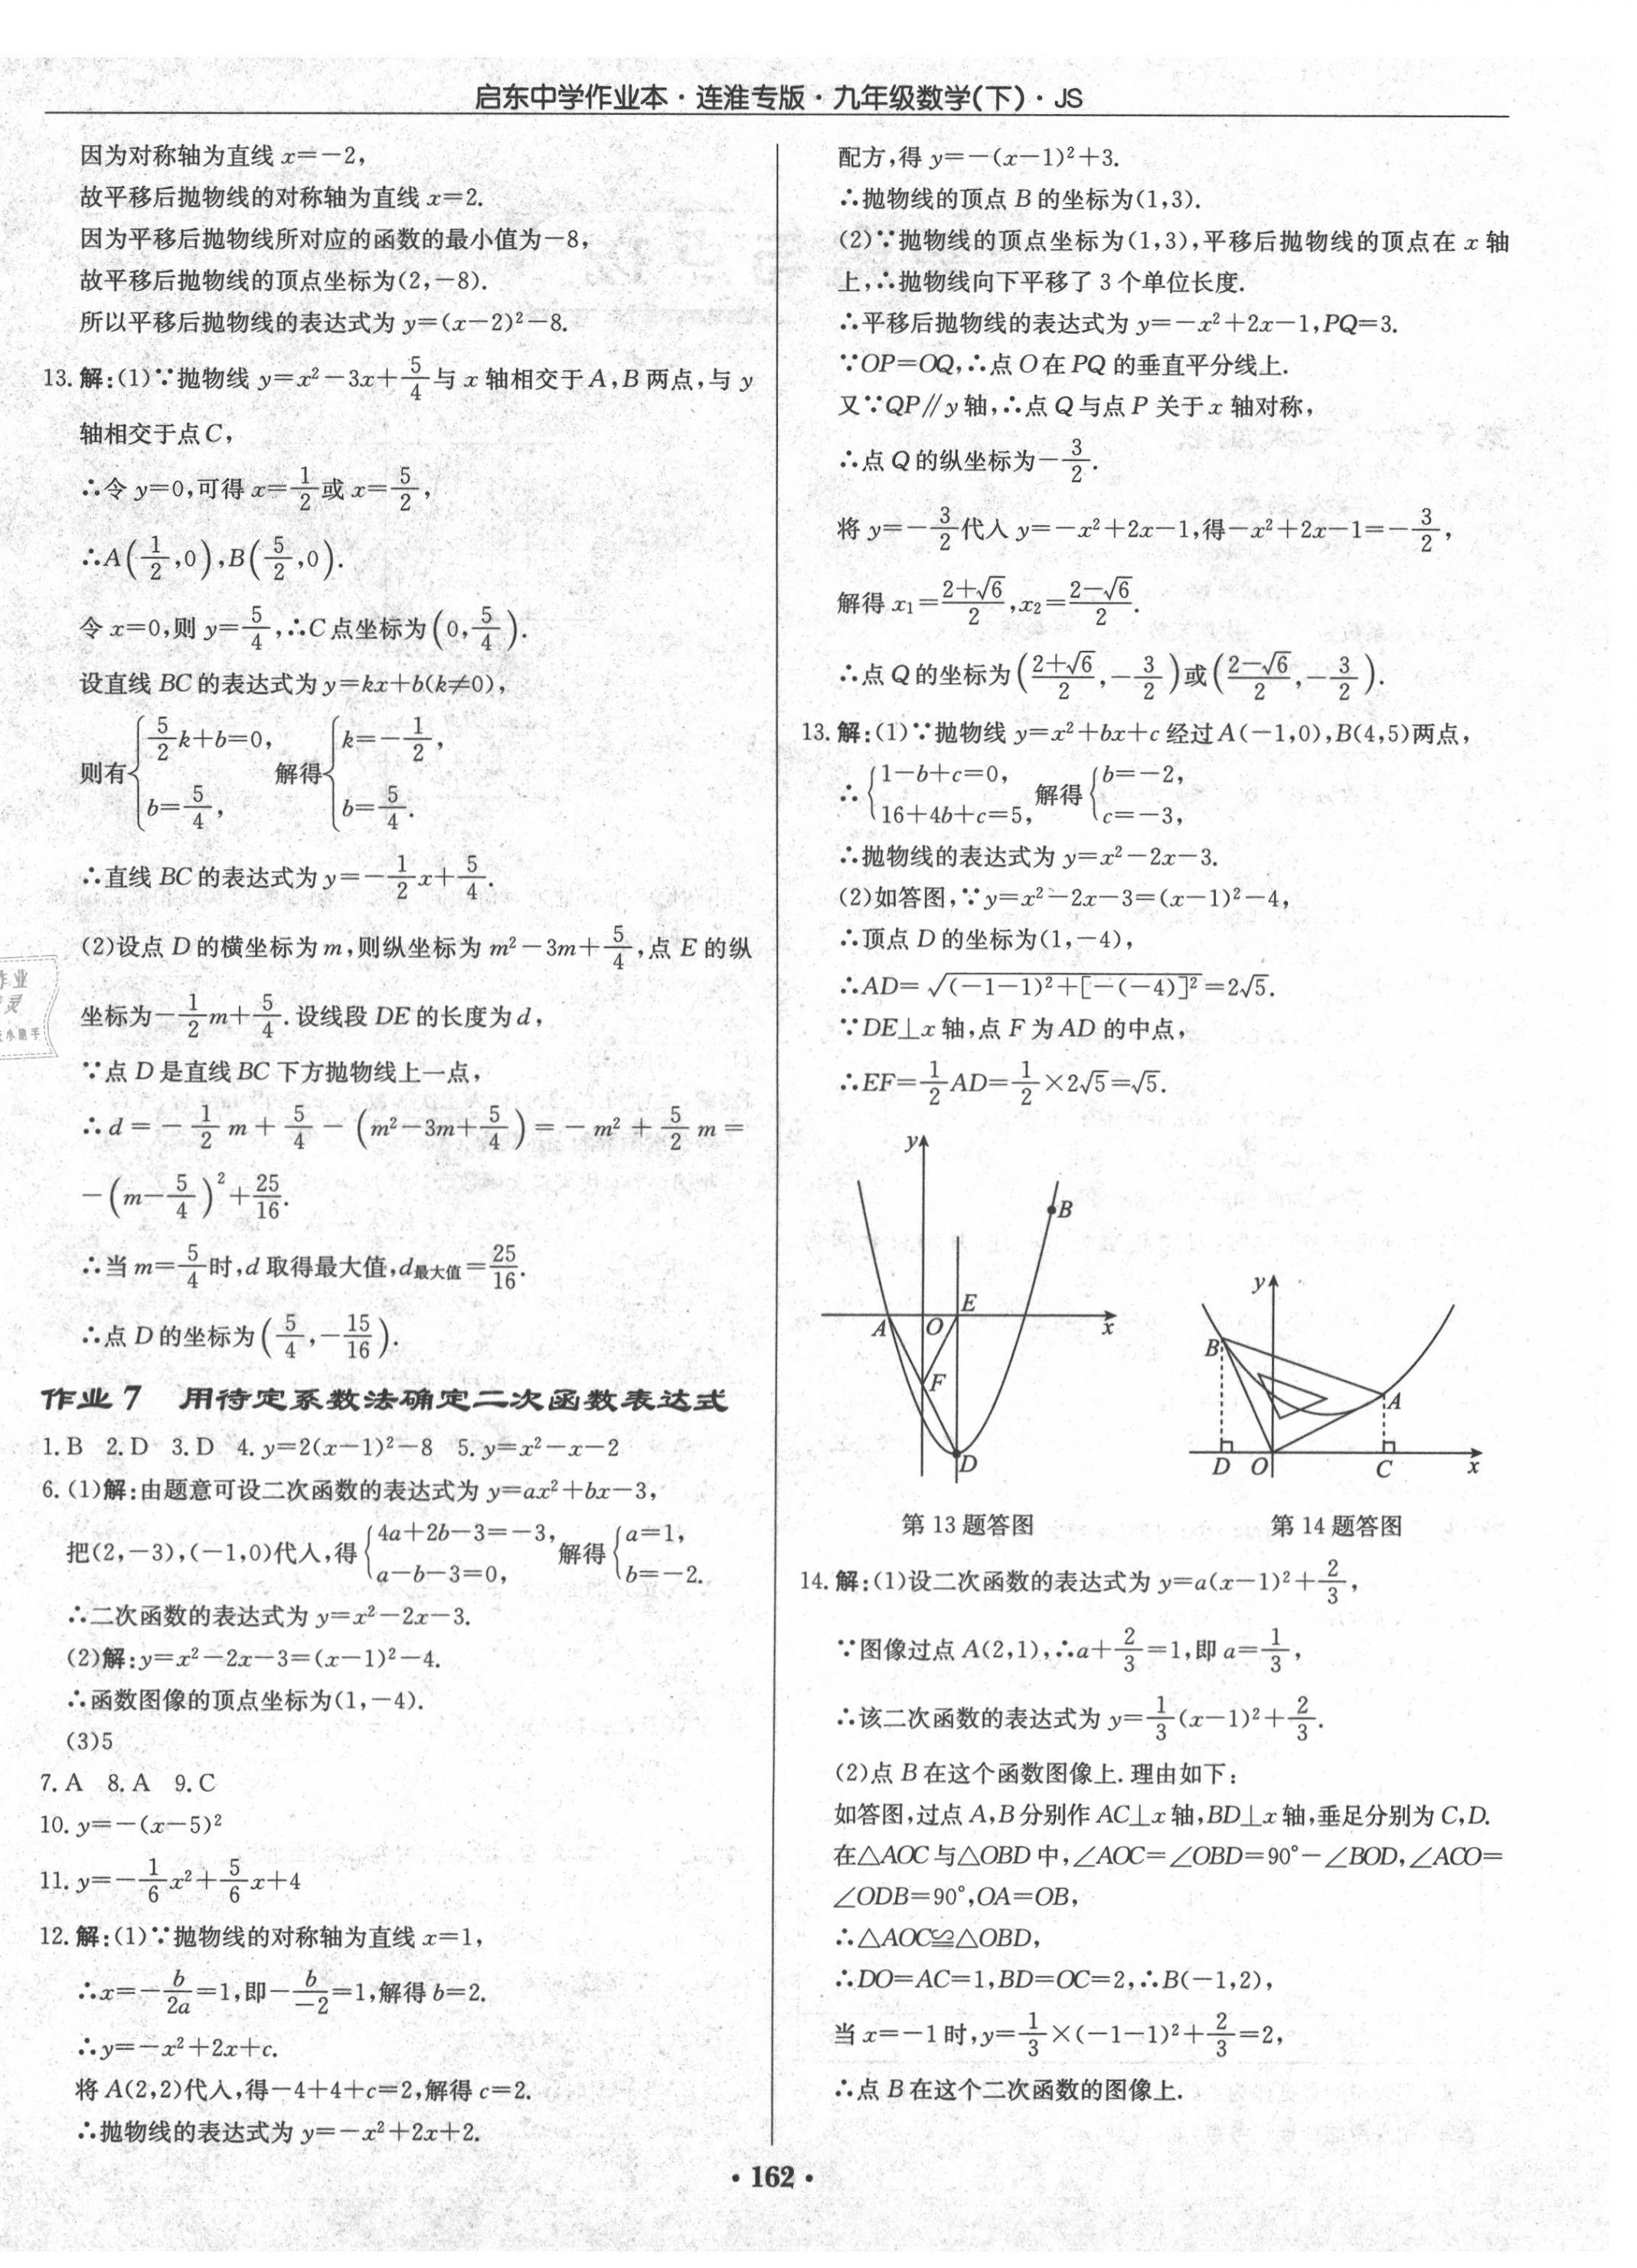 启东中学作业本·连淮专版·九年级数学(下)·JS
因为对称轴为直线 x=-2,
故平移后抛物线的对称轴为直线 x=2.
因为平移后抛物线所对应的函数的最小值为-8,
故平移后抛物线的顶点坐标为(2,-8).
所以平移后抛物线的表达式为 y=(x-2)²-8.
13.解:(1)∵抛物线 y=x²-3x+5/4与 x 轴相交于A,B两点,与 y
轴相交于点C,
∴令 y=0,可得 x=1/2或 x=5/2,
∴A(1/2,0),B(5/2,0).
令 x=0,则 y=5/4,∴C点坐标为(0,5/4).
设直线 BC的表达式为 y=kx+b(k≠0),
则有{5/2k+b=0, b=5/4, 解得{k=-1/2, b=5/4.
∴直线 BC的表达式为 y=-1/2x+5/4.
(2)设点 D 的横坐标为 m,则纵坐标为 m²-3m+5/4,点 E 的纵
坐标为-1/2m+5/4.设线段 DE的长度为d,
∵点 D 是直线 BC 下方抛物线上一点,
∴d=-1/2m+5/4-(m²-3m+5/4)=-m²+5/2m=
-(m-5/4)²+25/16.
∴当 m=5/4时,d 取得最大值,d最大值=25/16.
∴点 D 的坐标为(5/4,-15/16).
作业 7 用待定系数法确定二次函数表达式
1.B 2.D 3.D 4.y=2(x-1)²-8 5.y=x²-x-2
6.(1)解:由题意可设二次函数的表达式为 y=ax²+bx-3,
把(2,-3),(-1,0)代入,得{4a+2b-3=-3, a-b-3=0, 解得{a=1, b=-2.
∴二次函数的表达式为 y=x²-2x-3.
(2)解:y=x²-2x-3=(x-1)²-4.
∴函数图像的顶点坐标为(1,-4).
(3)5
7.A 8.A 9.C
10.y=-(x-5)²
11.y=-1/6x²+5/6x+4
12.解:(1)∵抛物线的对称轴为直线 x=1,
∴x=-b/2a=1,即-b/-2=1,解得 b=2.
∴y=-x²+2x+c.
将 A(2,2)代入,得-4+4+c=2,解得 c=2.
∴抛物线的表达式为 y=-x²+2x+2.
配方,得 y=-(x-1)²+3.
∴抛物线的顶点 B 的坐标为(1,3).
(2)∵抛物线的顶点坐标为(1,3),平移后抛物线的顶点在 x 轴
上,∴抛物线向下平移了 3 个单位长度.
∴平移后抛物线的表达式为 y=-x²+2x-1,PQ=3.
∵OP=OQ,∴点 O 在 PQ 的垂直平分线上.
又∵QP∥y轴,∴点 Q 与点 P 关于 x 轴对称,
∴点 Q 的纵坐标为-3/2.
将 y=-3/2代入 y=-x²+2x-1,得-x²+2x-1=-3/2,
解得 x₁=(2+√6)/2,x₂=(2-√6)/2.
∴点 Q 的坐标为((2+√6)/2,-3/2)或((2-√6)/2,-3/2).
13.解:(1)∵抛物线 y=x²+bx+c 经过A(-1,0),B(4,5)两点,
∴{1-b+c=0, 16+4b+c=5, 解得{b=-2, c=-3,
∴抛物线的表达式为 y=x²-2x-3.
(2)如答图,∵y=x²-2x-3=(x-1)²-4,
∴顶点 D 的坐标为(1,-4),
∴AD=√((-1-1)²+[-(-4)]²)=2√5.
∵DE⊥x 轴,点 F 为 AD 的中点,
∴EF=1/2AD=1/2×2√5=√5.
y
B
E
A
O
x
F
D
第 13 题答图
y
B
A
D
O
C
x
第 14 题答图
14.解:(1)设二次函数的表达式为 y=a(x-1)²+2/3,
∵图像过点 A(2,1),∴a+2/3=1,即 a=1/3,
∴该二次函数的表达式为 y=1/3(x-1)²+2/3.
(2)点 B 在这个函数图像上.理由如下:
如答图,过点 A,B 分别作 AC⊥x 轴,BD⊥x 轴,垂足分别为 C,D.
在△AOC 与△OBD 中,∠AOC=∠OBD=90°-∠BOD,∠ACO=
∠ODB=90°,OA=OB,
∴△AOC≌△OBD,
∴DO=AC=1,BD=OC=2,∴B(-1,2),
当 x=-1 时,y=1/3×(-1-1)²+2/3=2,
∴点 B 在这个二次函数的图像上.
·162·